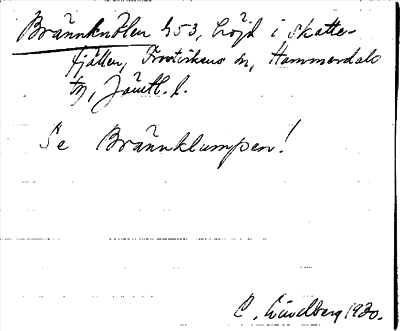 Brännknölen 453, höjd i skatte-
fjällen, Frostvikens sn, Hammerdals
tg, Jämtl. l.
Se Brännklumpen!
C. Lindberg 1930.